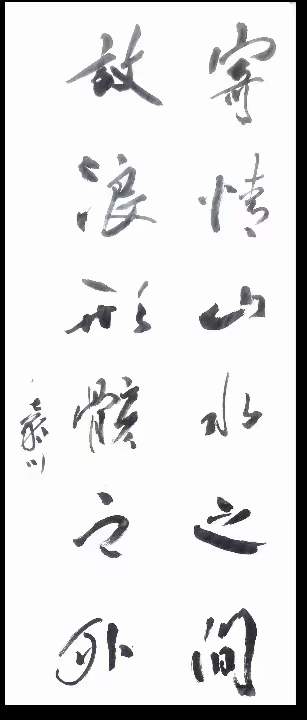 寄情山水之间
放浪形骸之外